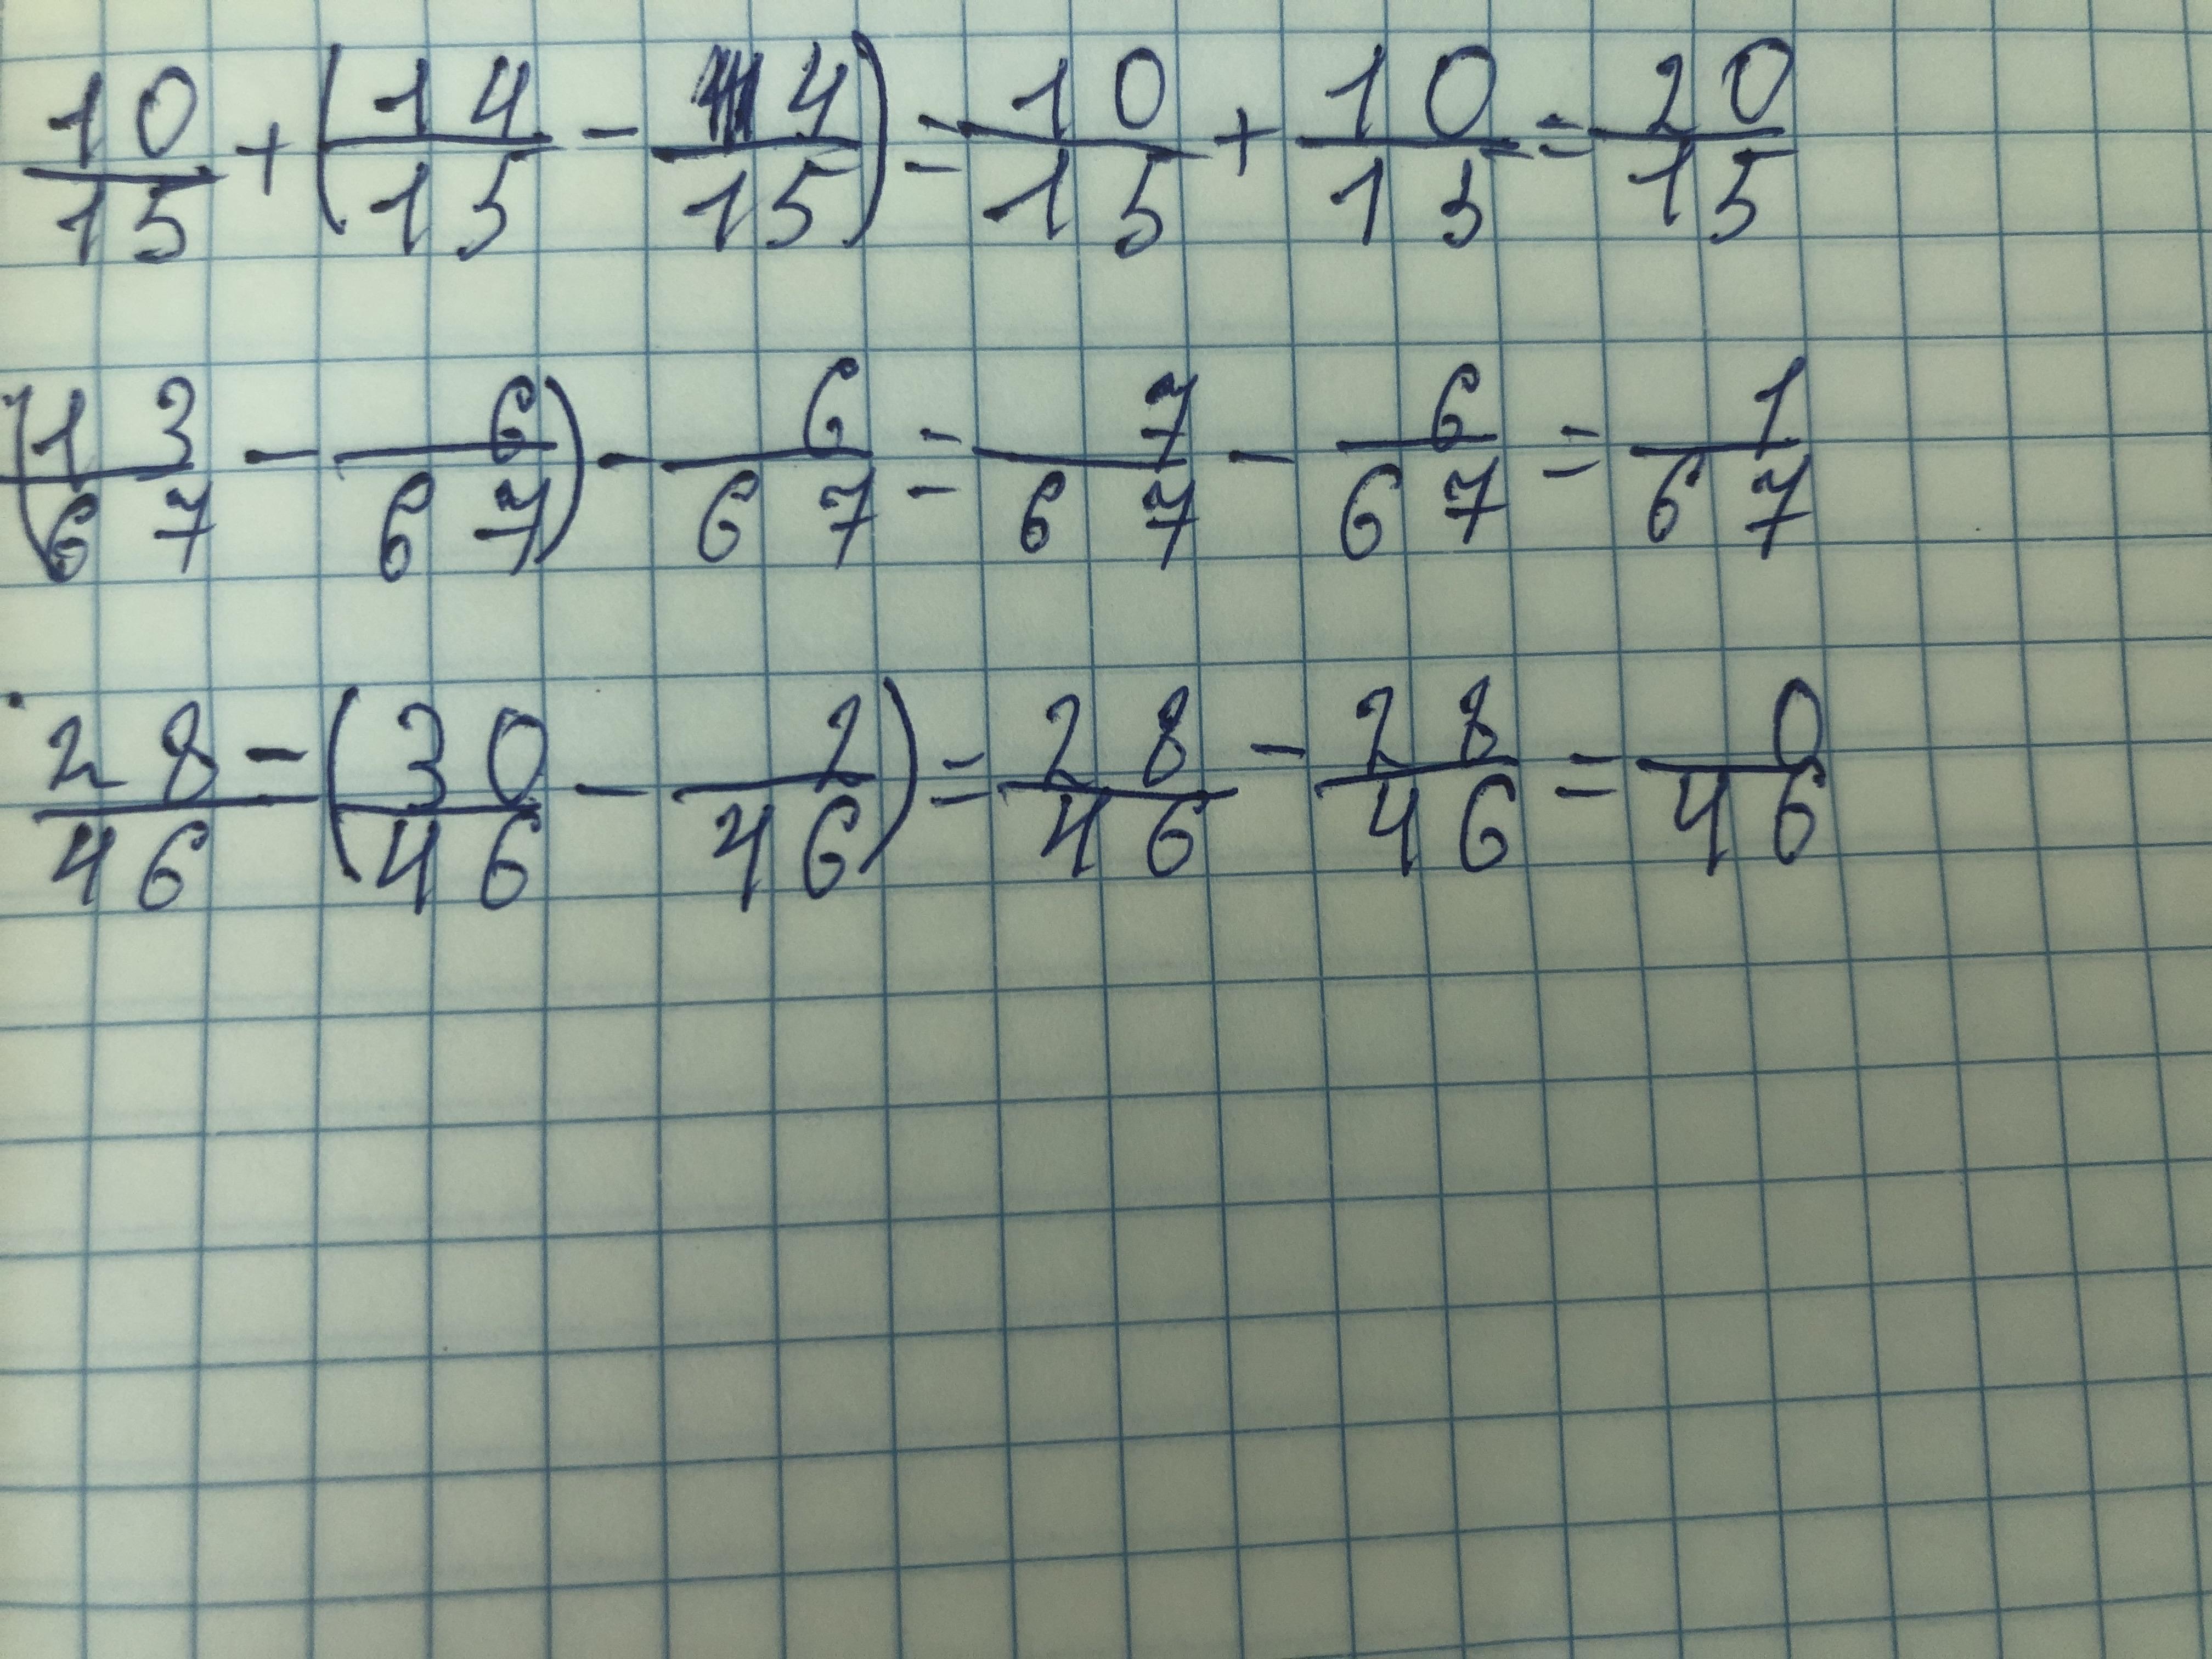 10/15 + (14/15 - 4/15) = 10/15 + 10/15 = 20/15
(13/67 - 6/67) - 6/67 = 7/67 - 6/67 = 1/67
28/46 - (30/46 - 2/46) = 28/46 - 28/46 = 0/46